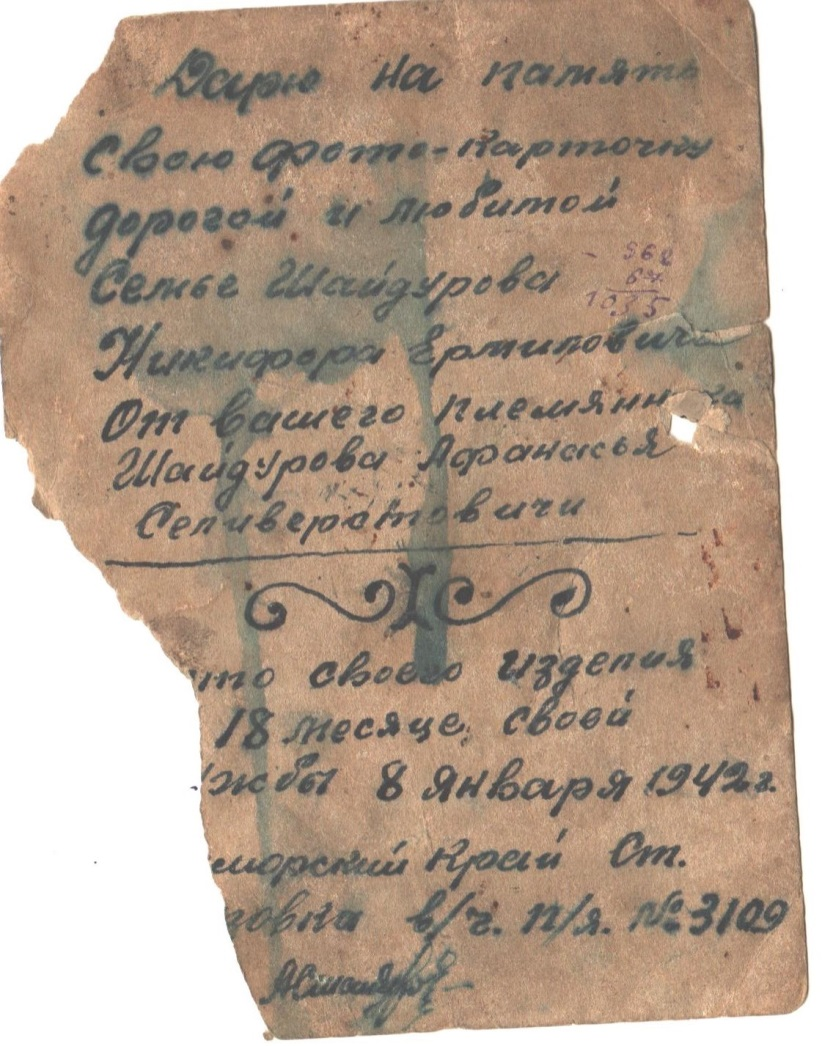 Дарю на память
Свою фото-карточку
дорогой и любимой
Семье Шайдурова
- 368
67
1035
Никифора Ермиловича
От вашего племянника
Шайдурова Афанасья
Селиверстовичи
то своего изделия
18 месяце своей
жбы 8 Января 1942 г.
морский Край Ст.
зовка в/ч. п/я. № 3109